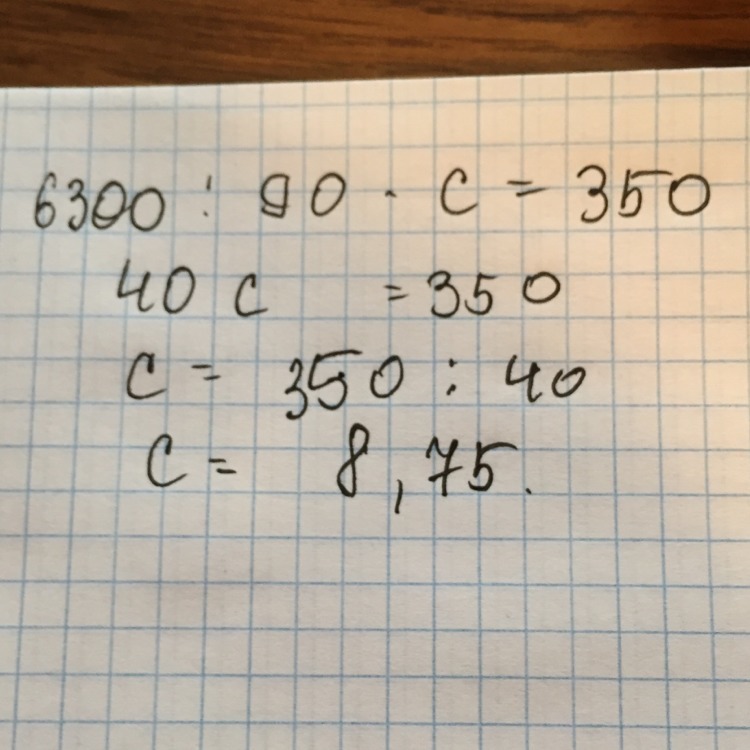 6300 : 90 · c = 350
40 c = 350
c = 350 : 40
c = 8,75.